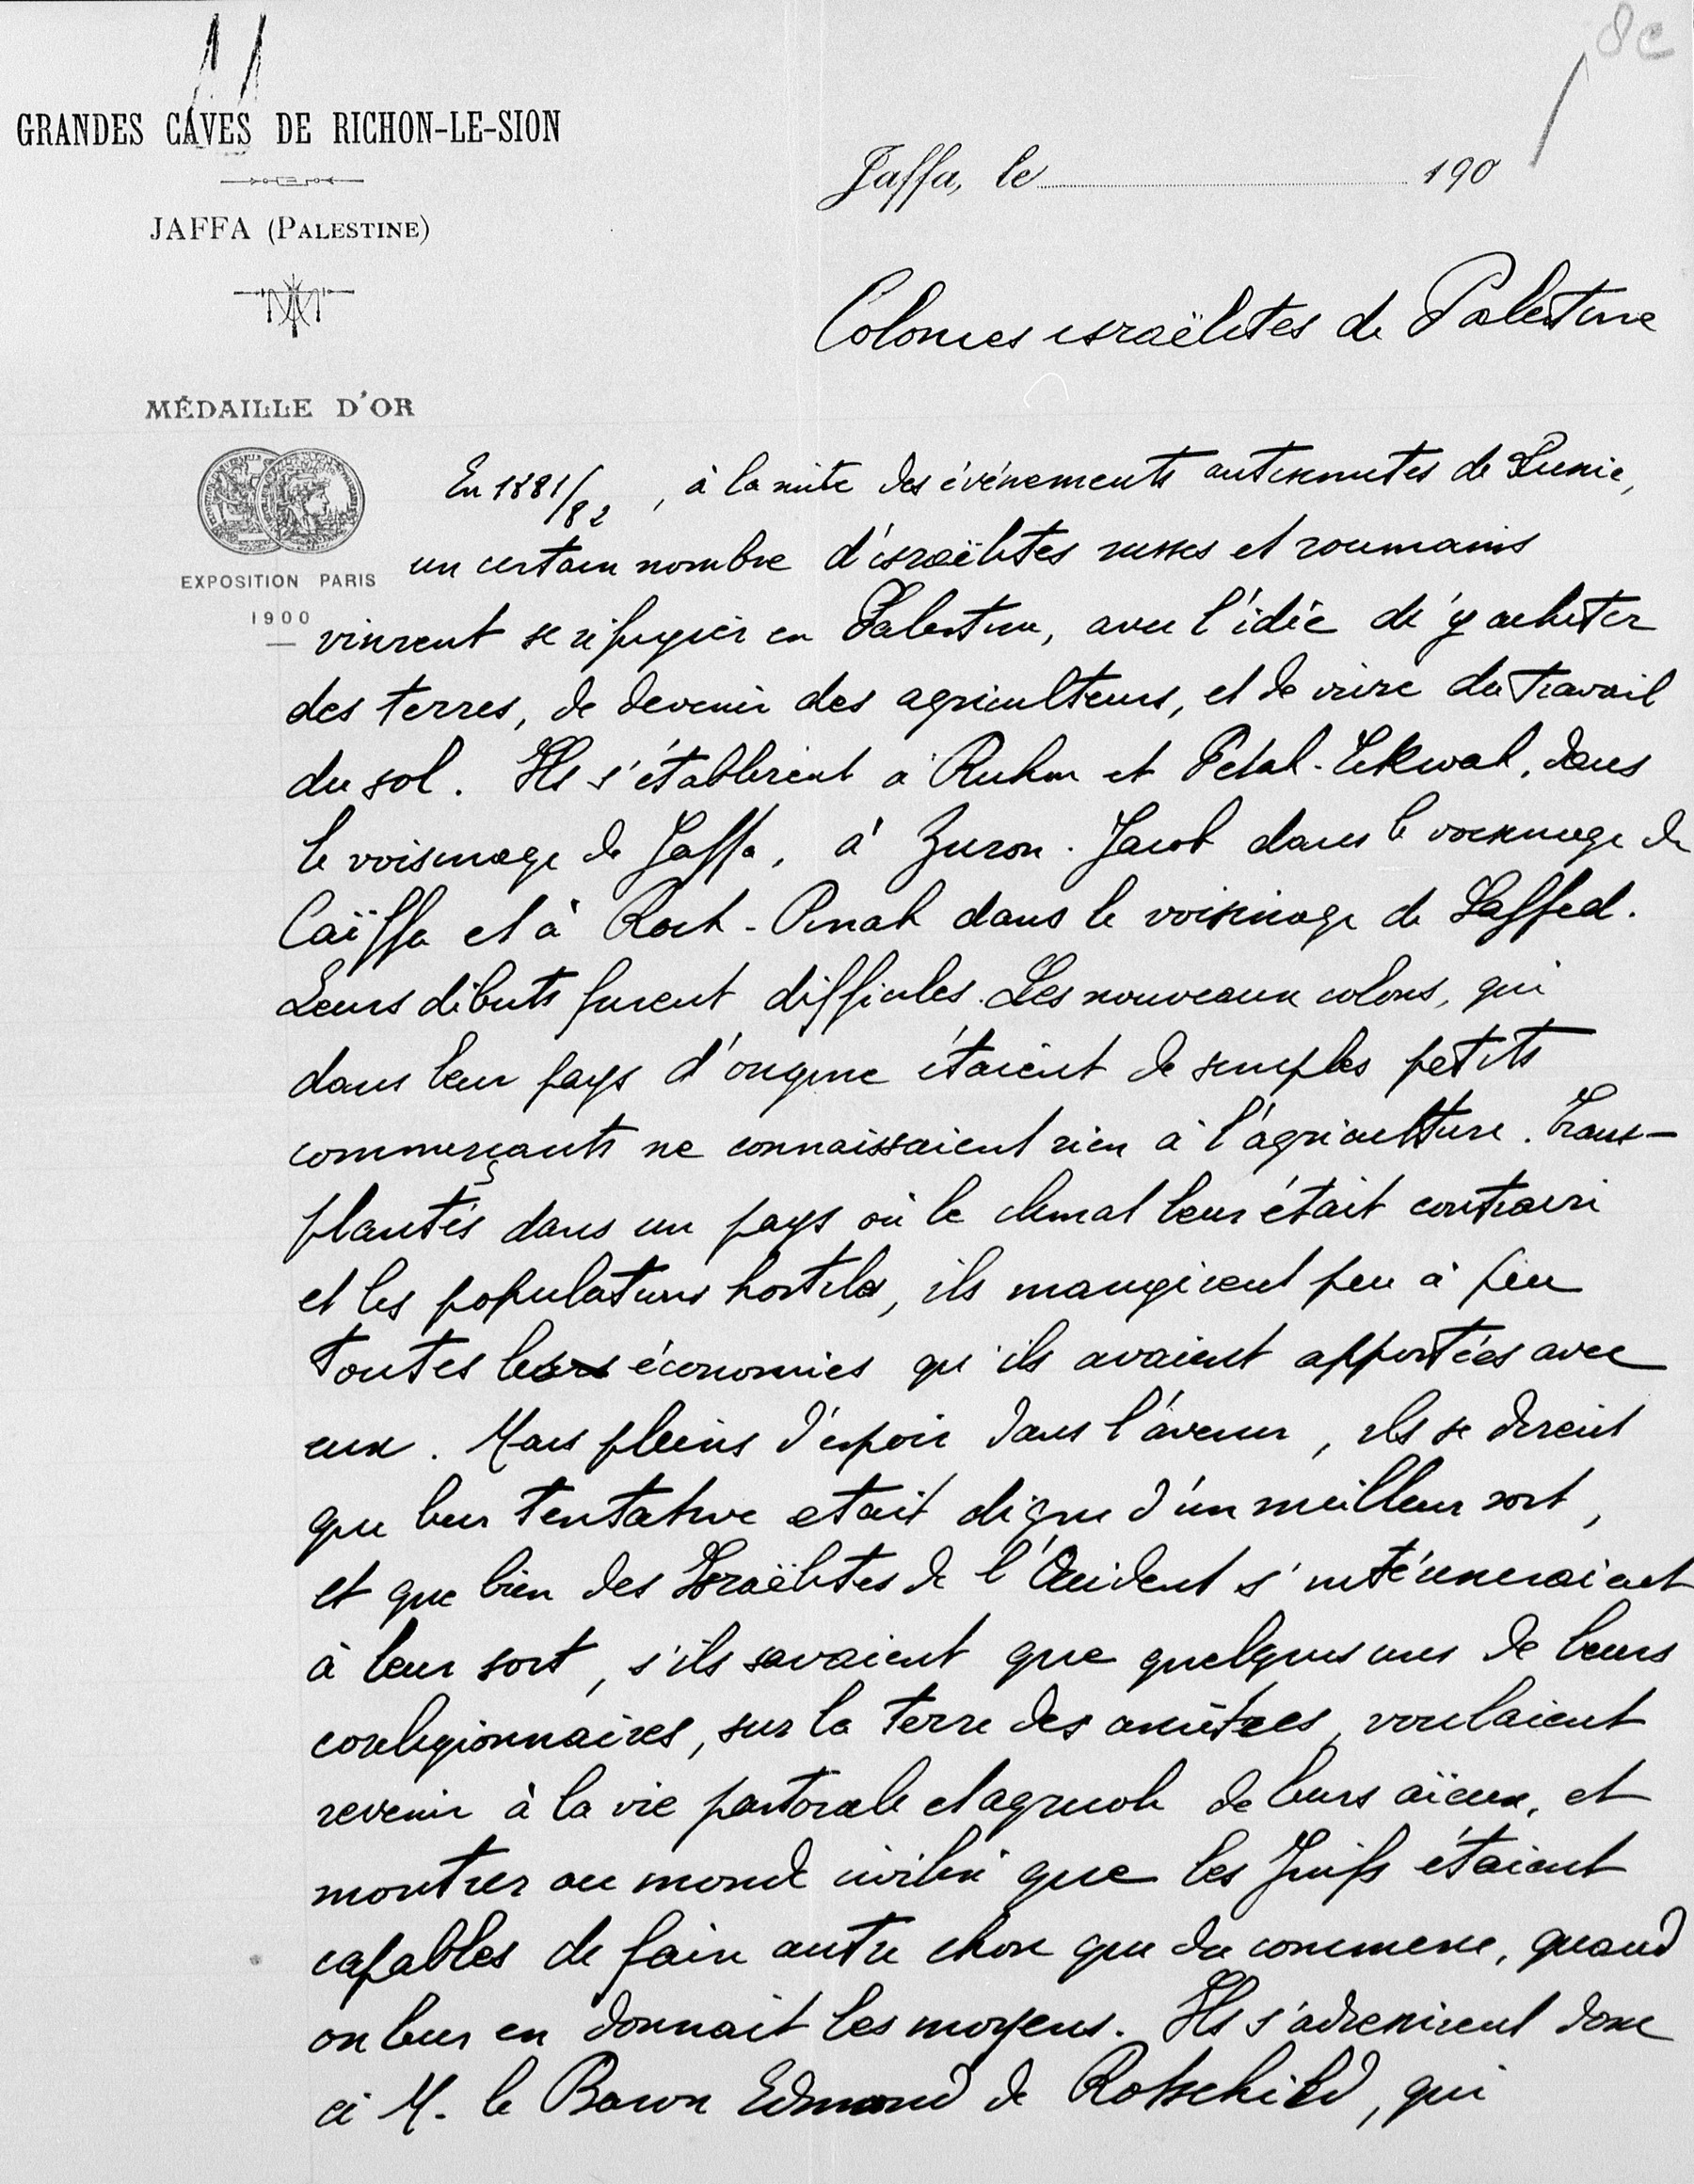 8e
GRANDES CAVES DE RICHON-LE-SION
JAFFA (PALESTINE)
Jaffa, le 190
Colonies israëlites de Palestine
MÉDAILLE D'OR
EXPOSITION PARIS
1900
En 1881/82, à la suite des événements antisémites de Russie,
un certain nombre d'israëlites russes et roumains
vinrent se réfugier en Palestine, avec l'idée d'y acheter
des terres, de devenir des agriculteurs, et de vivre du travail
du sol. Ils s'établirent à Richon et Petah-Tikwah, dans
le voisinage de Jaffa, à Zicron-Jacob dans le voisinage de
Caïffa et à Roch-Pinah dans le voisinage de Saffed.
Leurs débuts furent difficiles. Les nouveaux colons, qui
dans leur pays d'origine étaient de simples petits
commerçants ne connaissaient rien à l'agriculture. Trans-
plantés dans un pays où le climat leur était contraire
et les populations hostiles, ils mangèrent peu à peu
toutes les économies qu'ils avaient apportées avec
eux. Mais pleins d'espoir dans l'avenir, ils se dirent
que leur tentative etait digne d'un meilleur sort,
et que bien des Israëlites de l'Occident s'intéresseraient
à leur sort, s'ils savaient que quelques uns de leurs
coreligionnaires, sur la terre des ancêtres, voulaient
revenir à la vie pastorale et agricole de leurs aïeux, et
montrer au monde civilisé que les Juifs étaient
capables de faire autre chose que du commerce, quand
on leur en donnait les moyens. Ils s'adressèrent donc
à M. le Baron Edmond de Rotschild, qui